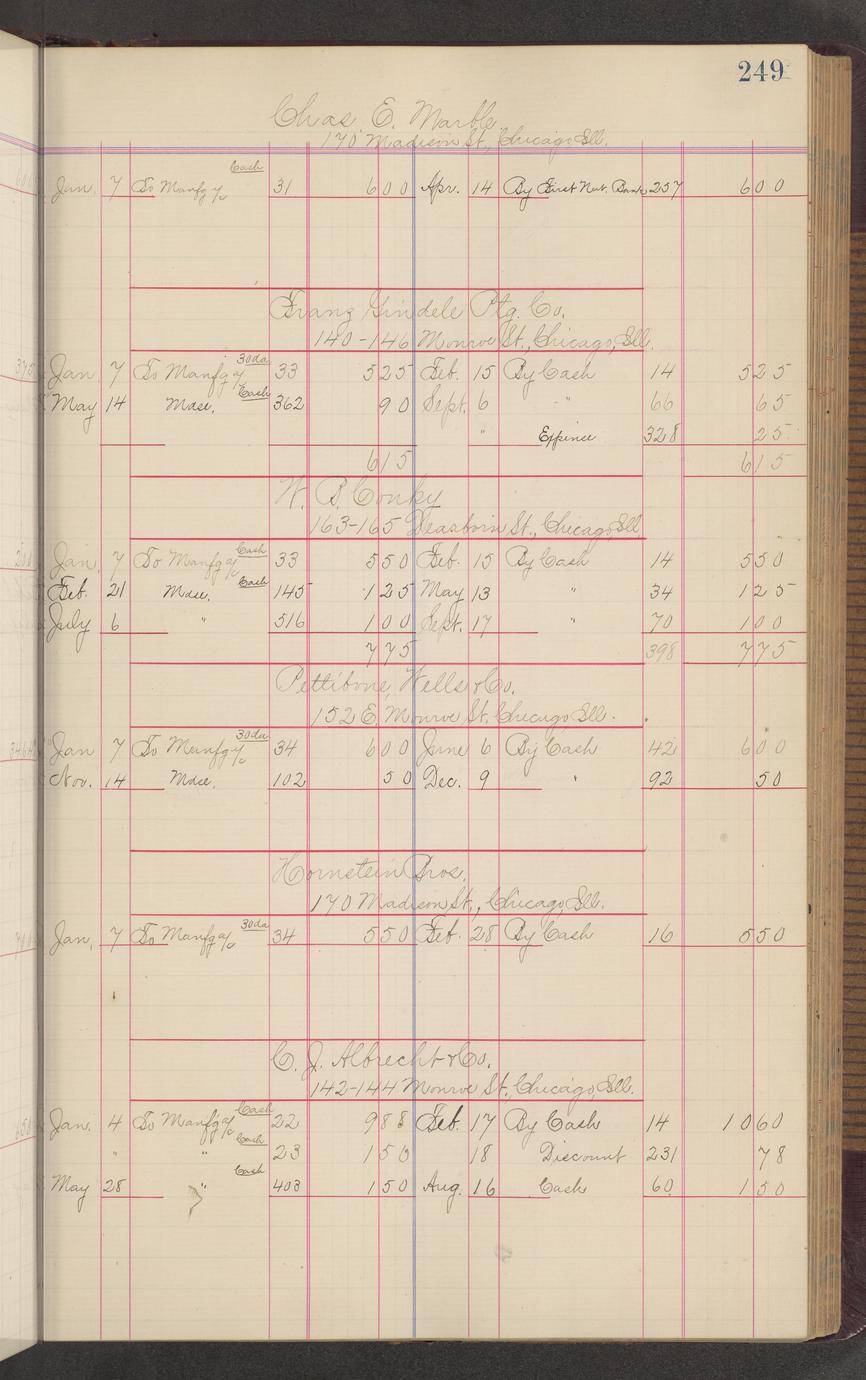 249
Chas. E. Marble
170 Madison St., Chicago, Ill.
Jan. 7 To Manfg a/c Cash 31 600 Apr. 14 By First Nat. Bank 257 600
Franz Gindele Ptg. Co.
140-146 Monroe St., Chicago, Ill.
Jan 7 To Manfg a/c 30da 33 525 Feb. 15 By Cash 14 525
May 14 Mdse. Cash 362 90 Sept. 6 " 66 65
" Expense 328 25
615 615
W. B. Conky
163-165 Dearborn St., Chicago, Ill
Jan. 7 To Manfg a/c Cash 33 550 Feb. 15 By Cash 14 550
Feb. 21 Mdse. Cash 145 125 May 13 " 34 125
July 6 " 516 100 Sept. 17 " 70 100
775 398 775
Pettibone, Wells & Co.
152 E. Monroe St., Chicago Ill.
Jan 7 To Manfg a/c 30da 34 600 June 6 By Cash 42 600
Nov. 14 Mdse. 102 50 Dec. 9 " 92 50
Hornstein Bros.
170 Madison St., Chicago, Ill.
Jan. 7 To Manfg a/c 30da 34 550 Feb. 28 By Cash 16 550
C. J. Albrecht & Co.
142-144 Monroe St., Chicago, Ill.
Jan. 4 To Manfg a/c Cash 22 988 Feb. 17 By Cash 14 1060
" " Cash 23 150 18 Discount 231 78
May 28 " Cash 403 150 Aug. 16 Cash 60 150